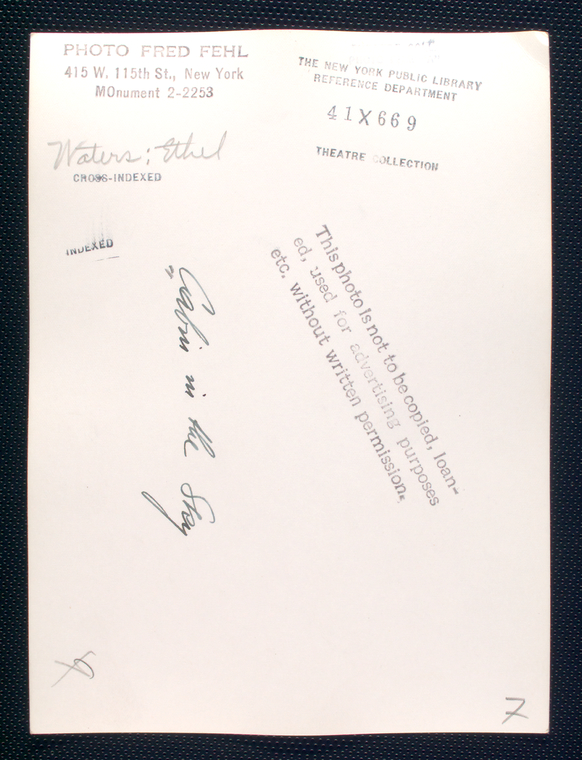 PHOTO FRED FEHL
415 W. 115th St., New York
MOnument 2-2253
THE NEW YORK PUBLIC LIBRARY
REFERENCE DEPARTMENT
41X669
THEATRE COLLECTION
Waters; Ethel
CROSS-INDEXED
INDEXED
This photo is not to be copied, loan-
ed, used for advertising purposes
etc. without written permission.
"Cabin in the Sky
7